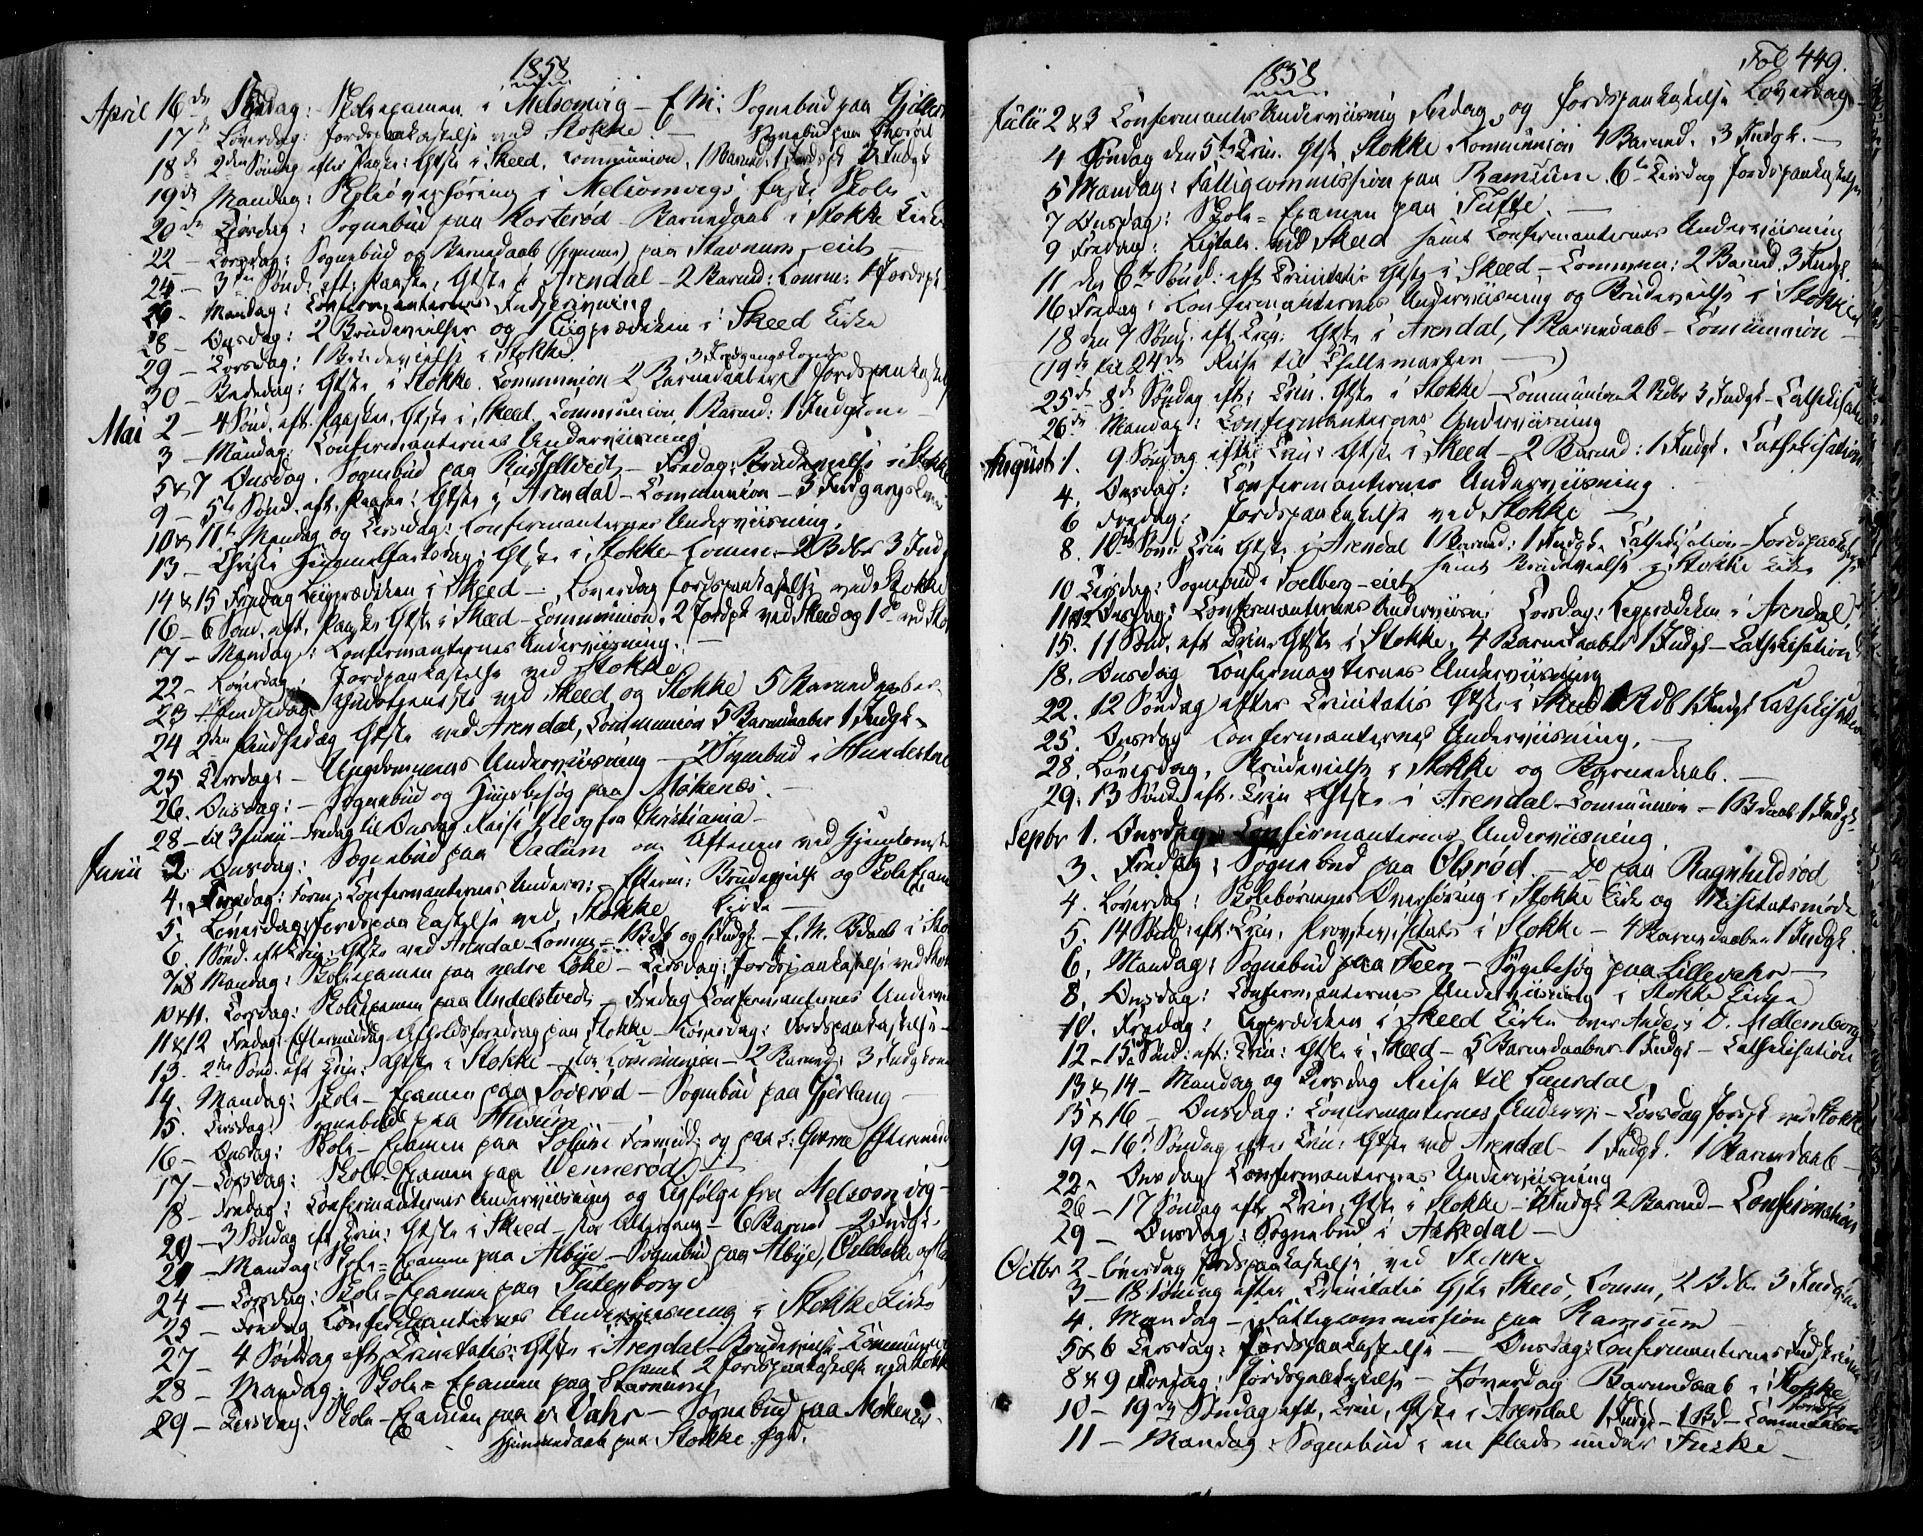 1858
April 16de Fredag: Skoleexamen i Melsomvig – E.M: Sognebud paa
17de Løverdag: Jordspaakastelse ved Stokke – Sognebud paa
18de 2den Søndag efter Paaske: Gtste i Skeed, Communion, 1 Barned: 1 Jordspk 2 Indgk
19de Mandag: i Melsomvigs faste Skole
20de Tirsdag: Sognebud paa Korterød – Barnedaab i Stokke Kirke
22 – Torsdag: Sognebud og Barnedaab (hjemme) paa Stavnum-eiet –
25 – 3die Sønd: eft: Paaske: Gtste i Arendal – 2 Barned: Comm: 1 Jordspk
26 – Mandag: Confirmanternes Indskrivning
28 – Onsdag: 2 Brudevielser og 1 Liigprædiken i Skeed Kirke
29 – Torsdag: 1 Brudevielse i Stokke. 3 Indgangskoner
30 – Bededag: Gtste i Stokke. Communion 2 Barnedaaber 1 Jordspaakastelse
Mai 2 – 4 Sønd. eft. Paaske, Gtste i Skeed, Communion 1 Barned: 1 Indgkone –
3 – Mandag: Confirmanternes Underviisning
5 & 7 Onsdag. Sognebud paa – Fredag: Brudevielse i Stokke
9 – 5te Sønd. eft. Paaske: Gtste i Arendal – Communion – 3 Indgangskoner
10 & 11te Mandag og Tirsdag: Confirmanternes Underviisning.
13 – Christi Himmelfartsdag: Gtste i Stokke – Comm – 2 Bdbr 3 Indg
14 & 15 Fredag Liigprædiken i Skeed – Løverdag Jordspaakastelse ved Stokke
16 – 6 Sønd. eft. Paaske Gtste i Skeed – Communion. 2 Jordpk ved Skeed og 1 do ved Sto
17 – Mandag: Confirmanternes Underviisning. –
22 – Løverdag: Jordspaakastelse ved Stokke
23 1ste Pindsedag: Gudstjeneste ved Skeed og Stokke 5 Barnedaaber.
24 2den Pindsedag Gtste ved Arendal, Communion 5 Barnedaaber 1 Indgk.
25 Tirsdag: – Ungdommens Underviisning – 2 Sognebud i
26. Onsdag: – Sognebud og Huusbesøg paa Møkenæs. –
28 – til 3 Junii – Fredag til Onsdag Reise til og fra Christiania –
Junii 2 Onsdag: Sognebud paa Vadum om Aftenen ved Hjemkomst
4. Fredag: Form: Confirmanternes Underv: – Efterm: Brudevielse og Skole Exam
5. Løverdag Jordspaakastelse ved Stokke Kirke –
6. 1 Sønd. eft Trin: Gtste ved Arendal – Comm – 1 Bdb og 1 Indgk – E.M. Bdaab i Sto
7 & 8 Mandag: Skoleexamen paa nedre Løke – Tirsdag: Jordspaakastelse ved Stok
10 & 11. Torsdag: Skoleexamen paa Undelstvedt – Fredag Confirmanternes Underv
11 & 12 Fredag Eftermiddag Afholdsforedrag paa Stokke – Løverdag: Jordspaakastelse –
13. 2den Sønd. eft Trin: Gtste i Stokke – Communion – 2 Barned: 3 Indgkoner
14. Mandag: Skole-Examen paa Soderød – Sognebud paa Gjerlang –
15. Tirsdag: Sognebud paa
16 – Onsdag: Skole-Examen paa Solum Formid: og paa Efterm
17 – Torsdag: Skole-Examen paa Vennerød –
18 – Fredag: Confirmanternes Underviisning og Liigfølge fra Melsomvig –
20 – 3 Søndag eft Trin: Gtste i Skeed – Altergang – 6 Barned – 2 Indgk.
21 – Mandag: Skole-Examen paa Albye – Sognebud paa Albye,
24 – Torsdag: Skole-Examen paa Futenborge
25 – Fredag Confirmanternes Underviisning i Stokke Kirke
27 – 4 Søndag eft Trinitatis: Gtste i Arendal – Brudevielse – Communion
samt 2 Jordspaakastelse ved Stokke
28 – Mandag: Skole-Examen paa Starnum
29 – Tirsdag: Skole-Examen paa Vahr – Sognebud paa Møkenes.
Hjemmedaab paa Stokke Pgd.
1858
Fol 449.
Julii 2 & 3 Confirmanternes Underviisning Fredag og Jordspaakastelse Løverdag –
4 Søndag den 5te Trin. Gtste Stokke Communion 4 Barned. 3 Indgk. –
5 Mandag: Fattigcommission paa Ramsum. 6te Tirsdag Jordspaakastelse
7 Onsdag: Skole-Examen paa Tufte. –
9 Fredag: Ligtale ved Skeed samt Confirmanternes Underviisning
11 den 6te Sønd. eft Trinitatis Gtste i Skeed – Commun: 2 Barned. 3 Indgk.
16 Fredag: Confirmanternes Underviisning og Brudevielse i Stokke
18 den 7 Sønd: eft Trin: Gtste i Arendal, 1 Barnedaab – Communion –
(19de til 24de Reise til Thellemarken –)
25de 8de Søndag eft: Trin. Gtste i Stokke – Communion 2 Bdbr 3 Indgk – Cathekisation
26de Mandag: Confirmanternes Underviisning
August 1. 9 Søndag efter Trin: Gtste i Skeed – 2 Barned: 1 Indgk. Cathekisation
4. Onsdag: Confirmanternes Underviisning
6 Fredag: Jordspaakastelse ved Stokke –
8. 10de Sønd Trin Gtste i Arendal 1 Barned: 1 Indgk. Cathekisation – Jordspaakastelse
samt Brudevielse i Stokke Kirke
10 Tirsdag: Sognebud i Solberg-eiet
11 & 12 Onsdag: Confirmanternes Underviisn: Torsdag: Ligprædiken i Arendal,
15. 11 Sønd. eft Trin. Gtste i Stokke, 4 Barnedaaber 1 Indgk – Cathekisation
18. Onsdag Confirmanternes Underviisning
22. 12 Søndag efter Trinitatis Gtste i Skeed 1 Bdb 1 Indgk Cathekisation
25. Onsdag Confirmanternes Underviisning. –
28. Løverdag, Brudevielse i Stokke og Barnedaab. –
29. 13 Sønd. eft. Trin Gtste i Arendal – Communion – 1 Bdaab 1 Indgk.
Septbr 1. Onsdag: Confirmanternes Underviisning.
3. Fredag: Sognebud paa Olsrød. – Do paa Ragnhildrød
4. Løverdag: Skolebørnenes Overhøring i Stokke Kirke og Visitatsmøde
5. 14 Sønd: eft: Trin, Provstevisitats i Stokke – 4 Barnedaaber 1 Indgk.
6. Mandag: Sognebud paa Feen – Sygebesøg paa Lillevahr –
8. Onsdag: Confirmanternes Underviisning i Stokke Kirke
10. Fredag: Ligprædiken i Skeed Kirke over Anders O. Mellemborg
12 – 15de Sønd: eft: Trin: Gtste i Skeed – 5 Barnedaaber 1 Indgk – Cathekisation
13 & 14 – Mandag og Tirsdag Reise til Laurdal
15 & 16 – Onsdag: Confirmanternes Underv: – Torsdag Jordspk ved Stokke
19 – 16de Søndag efter Trin: Gtste ved Arendal – 1 Indgk. 1 Barnedaab –
22 – Onsdag Confirmanternes Underviisning
26 – 17 Søndag efter Trin, Gtste i Stokke – Indgk 2 Barned – Confirmation
29 – Onsdag: Sognebud i Askedal –
Octbr 2 – Løverdag Jordspaakastelse ved Stokke
3 – 18 Søndag efter Trinitatis Gtste Skeed, Comm, 2 Bdbr 3 Indgk
4. Mandag – Fattigcommission paa Ramsum –
5 & 6 Tirsdag: Jordspaakastelse – Onsdag: Confirmanternes Indskrivning
8 & 9 Fredag: Jordspaakastelse – Løverdag Barnedaab i Stokke
10 – 19de Søndag eft. Trin, Gtste i Arendal 1 Indgk – 1 Bd – Communion
11 – Mandag: Sognebud i en Plads under Fuske –